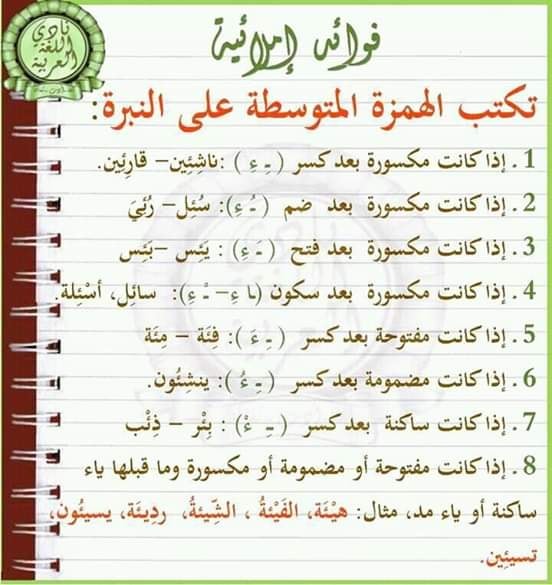 نادي
اللغة
العربية
فوائد إملائية
تكتب الهمزة المتوسطة على النبرة:
1. إذا كانت مكسورة بعد كسر ( ـِ ءِ ) :ناشِئِين– قارِئِين.
2. إذا كانت مكسورة بعد ضم ( ـُ ءِ): سُئِل– رُئِيَ
3. إذا كانت مكسورة بعد فتح ( ـَ ءِ) : يَئِس –بَئِس
4. إذا كانت مكسورة بعد سكون (ـا ءِ– ـْ ءِ): سائِل، أسْئِلة.
5. إذا كانت مفتوحة بعد كسر ( ـِ ءَ ): فِئَة – مِئَة
6. إذا كانت مضمومة بعد كسر ( ـِ ءُ ): ينشِئُون.
7. إذا كانت ساكنة بعد كسر ( ـِ ءْ) : بِئْر – ذِئْب
8. إذا كانت مفتوحة أو مضمومة أو مكسورة وما قبلها ياء
ساكنة أو ياء مد، مثال: هيْئَة، الفَيْئةُ ، الشَّيئةُ، ردِيئَة، يسيئُون،
تسيئِين.